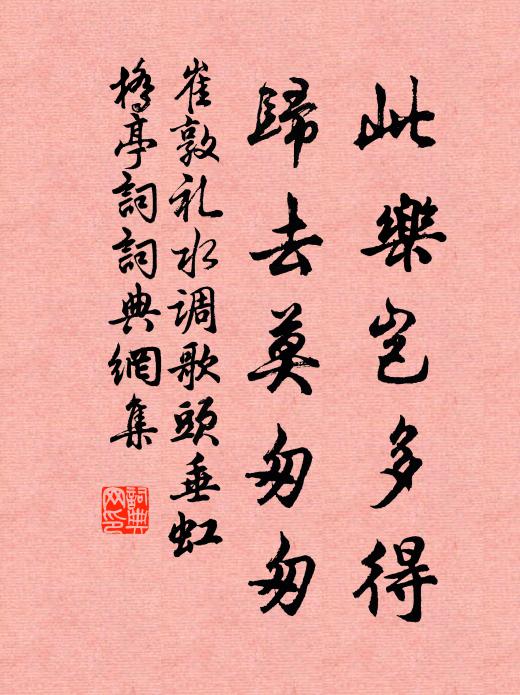 此樂岂多得
歸去莫匆匆
崔敦礼水调歌頭垂虹
橋亭詞詞典網集
詞典
网印